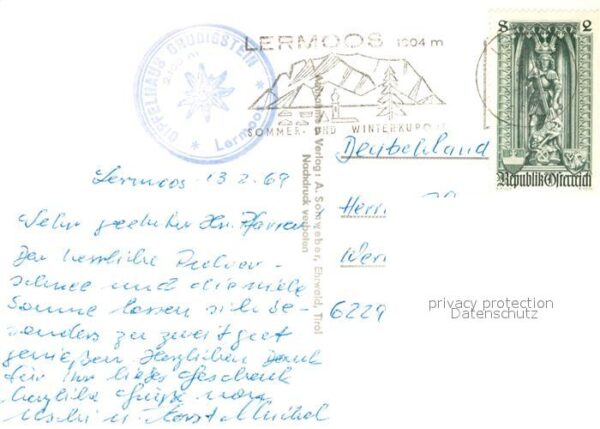 GIPFELHAUS GRUBIGSTEIN
Lermoos
LERMOOS 1004 m
SOMMER- UND WINTERKURORT
S 2
Republik Österreich
Aufnahme u. Verlag: A. Somweber, Ehrwald, Tirol
Nachdruck verboten
Deutschland
Herrn
6229
privacy protection
Datenschutz
Lermoos 13.2.69
Sehr geehrter Hr. Pfarrer
Der herrliche Pulver-
schnee und die viele
Sonne lassen sich be-
sonders zu zweit gut
genießen. Herzlichen Dank
für Ihr liebes Geschenk
herzliche Grüße von
Uschi u. Horst